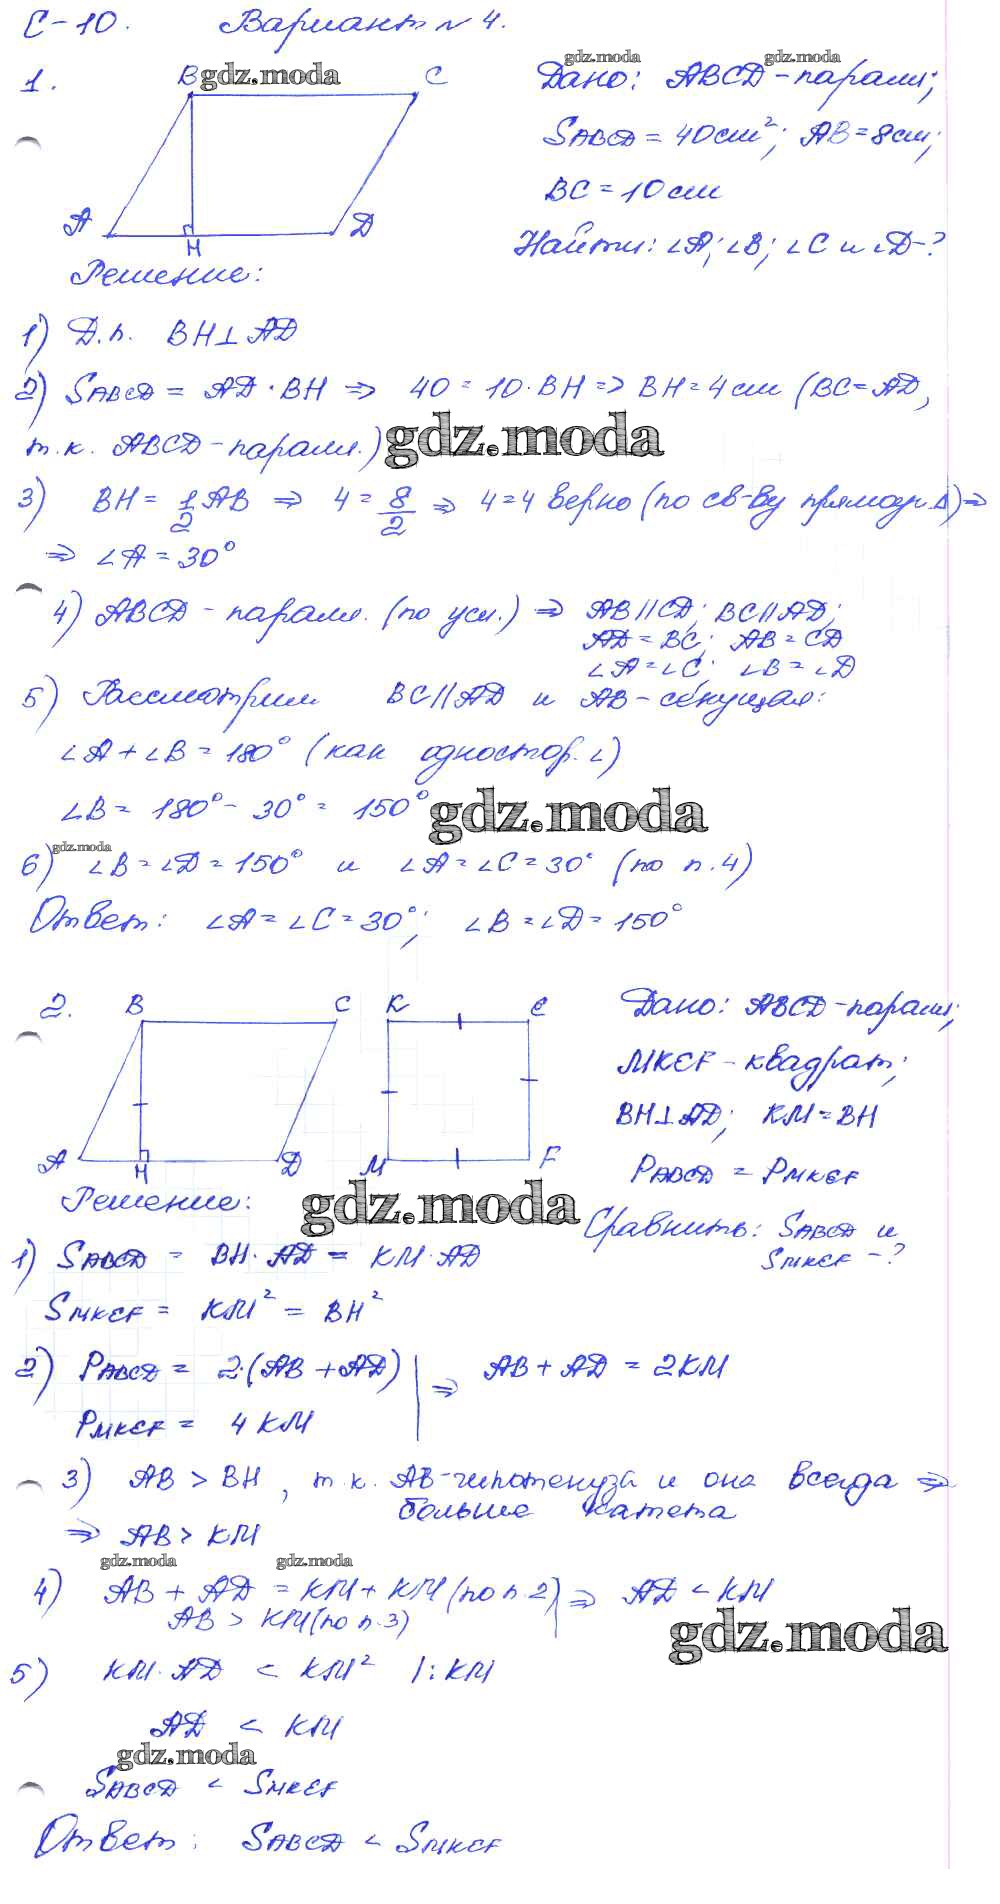 С-10. Вариант № 4.
1. B gdz.moda C
gdz.moda gdz.moda
Дано: ABCD - паралл;
SABCD = 40см²; AB = 8см;
BC = 10см
A H D
Найти: ∠A; ∠B; ∠C и ∠D-?
Решение:
1) Д.п. BH⊥AD
2) SABCD = AD · BH ⇒ 40 = 10·BH ⇒ BH = 4см (BC = AD,
т.к. ABCD - паралл.) gdz.moda
3) BH = 1/2 AB ⇒ 4 = 8/2 ⇒ 4 = 4 верно (по св-ву прямоуг. Δ) ⇒
⇒ ∠A = 30°
4) ABCD - паралл. (по усл.) ⇒ AB||CD; BC||AD;
AD = BC; AB = CD
∠A = ∠C; ∠B = ∠D
5) Рассмотрим BC||AD и AB - секущая:
∠A + ∠B = 180° (как одностор. ∠)
∠B = 180° - 30° = 150° gdz.moda
gdz.moda
6) ∠B = ∠D = 150° и ∠A = ∠C = 30° (по п.4)
Ответ: ∠A = ∠C = 30°; ∠B = ∠D = 150°
2. B C K E
Дано: ABCD - паралл;
MKEF - квадрат;
BH⊥AD; KM = BH
A H D M F
PABCD = PMKEF
Решение: gdz.moda
Сравнить: SABCD и
SMKEF - ?
1) SABCD = BH · AD = KM · AD
SMKEF = KM² = BH²
2) PABCD = 2·(AB + AD) | ⇒ AB + AD = 2KM
PMKEF = 4 KM
3) AB > BH, т.к. AB - гипотенуза и она всегда ⇒
больше катета
⇒ AB > KM
gdz.moda gdz.moda
4) AB + AD = KM + KM (по п.2) | ⇒ AD < KM
AB > KM (по п.3)
gdz.moda
5) KM · AD < KM² |: KM
AD < KM
gdz.moda
SABCD < SMKEF
Ответ: SABCD < SMKEF